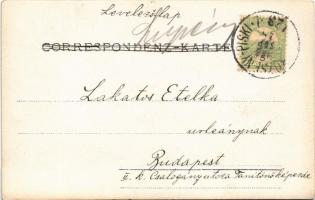 Levelezőlap
CORRESPONDENZ-KARTE
Lakatos Etelka
urleánynak
Budapest
II. k. Csalogány utcza Tanítónőképezde